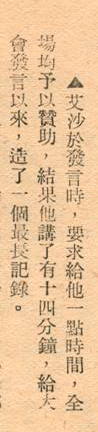 ▲艾沙於發言時，要求給他一點時間，全
場均予以贊助，結果他講了有十四分鐘，給大
會發言以來，造了一個最長記錄。